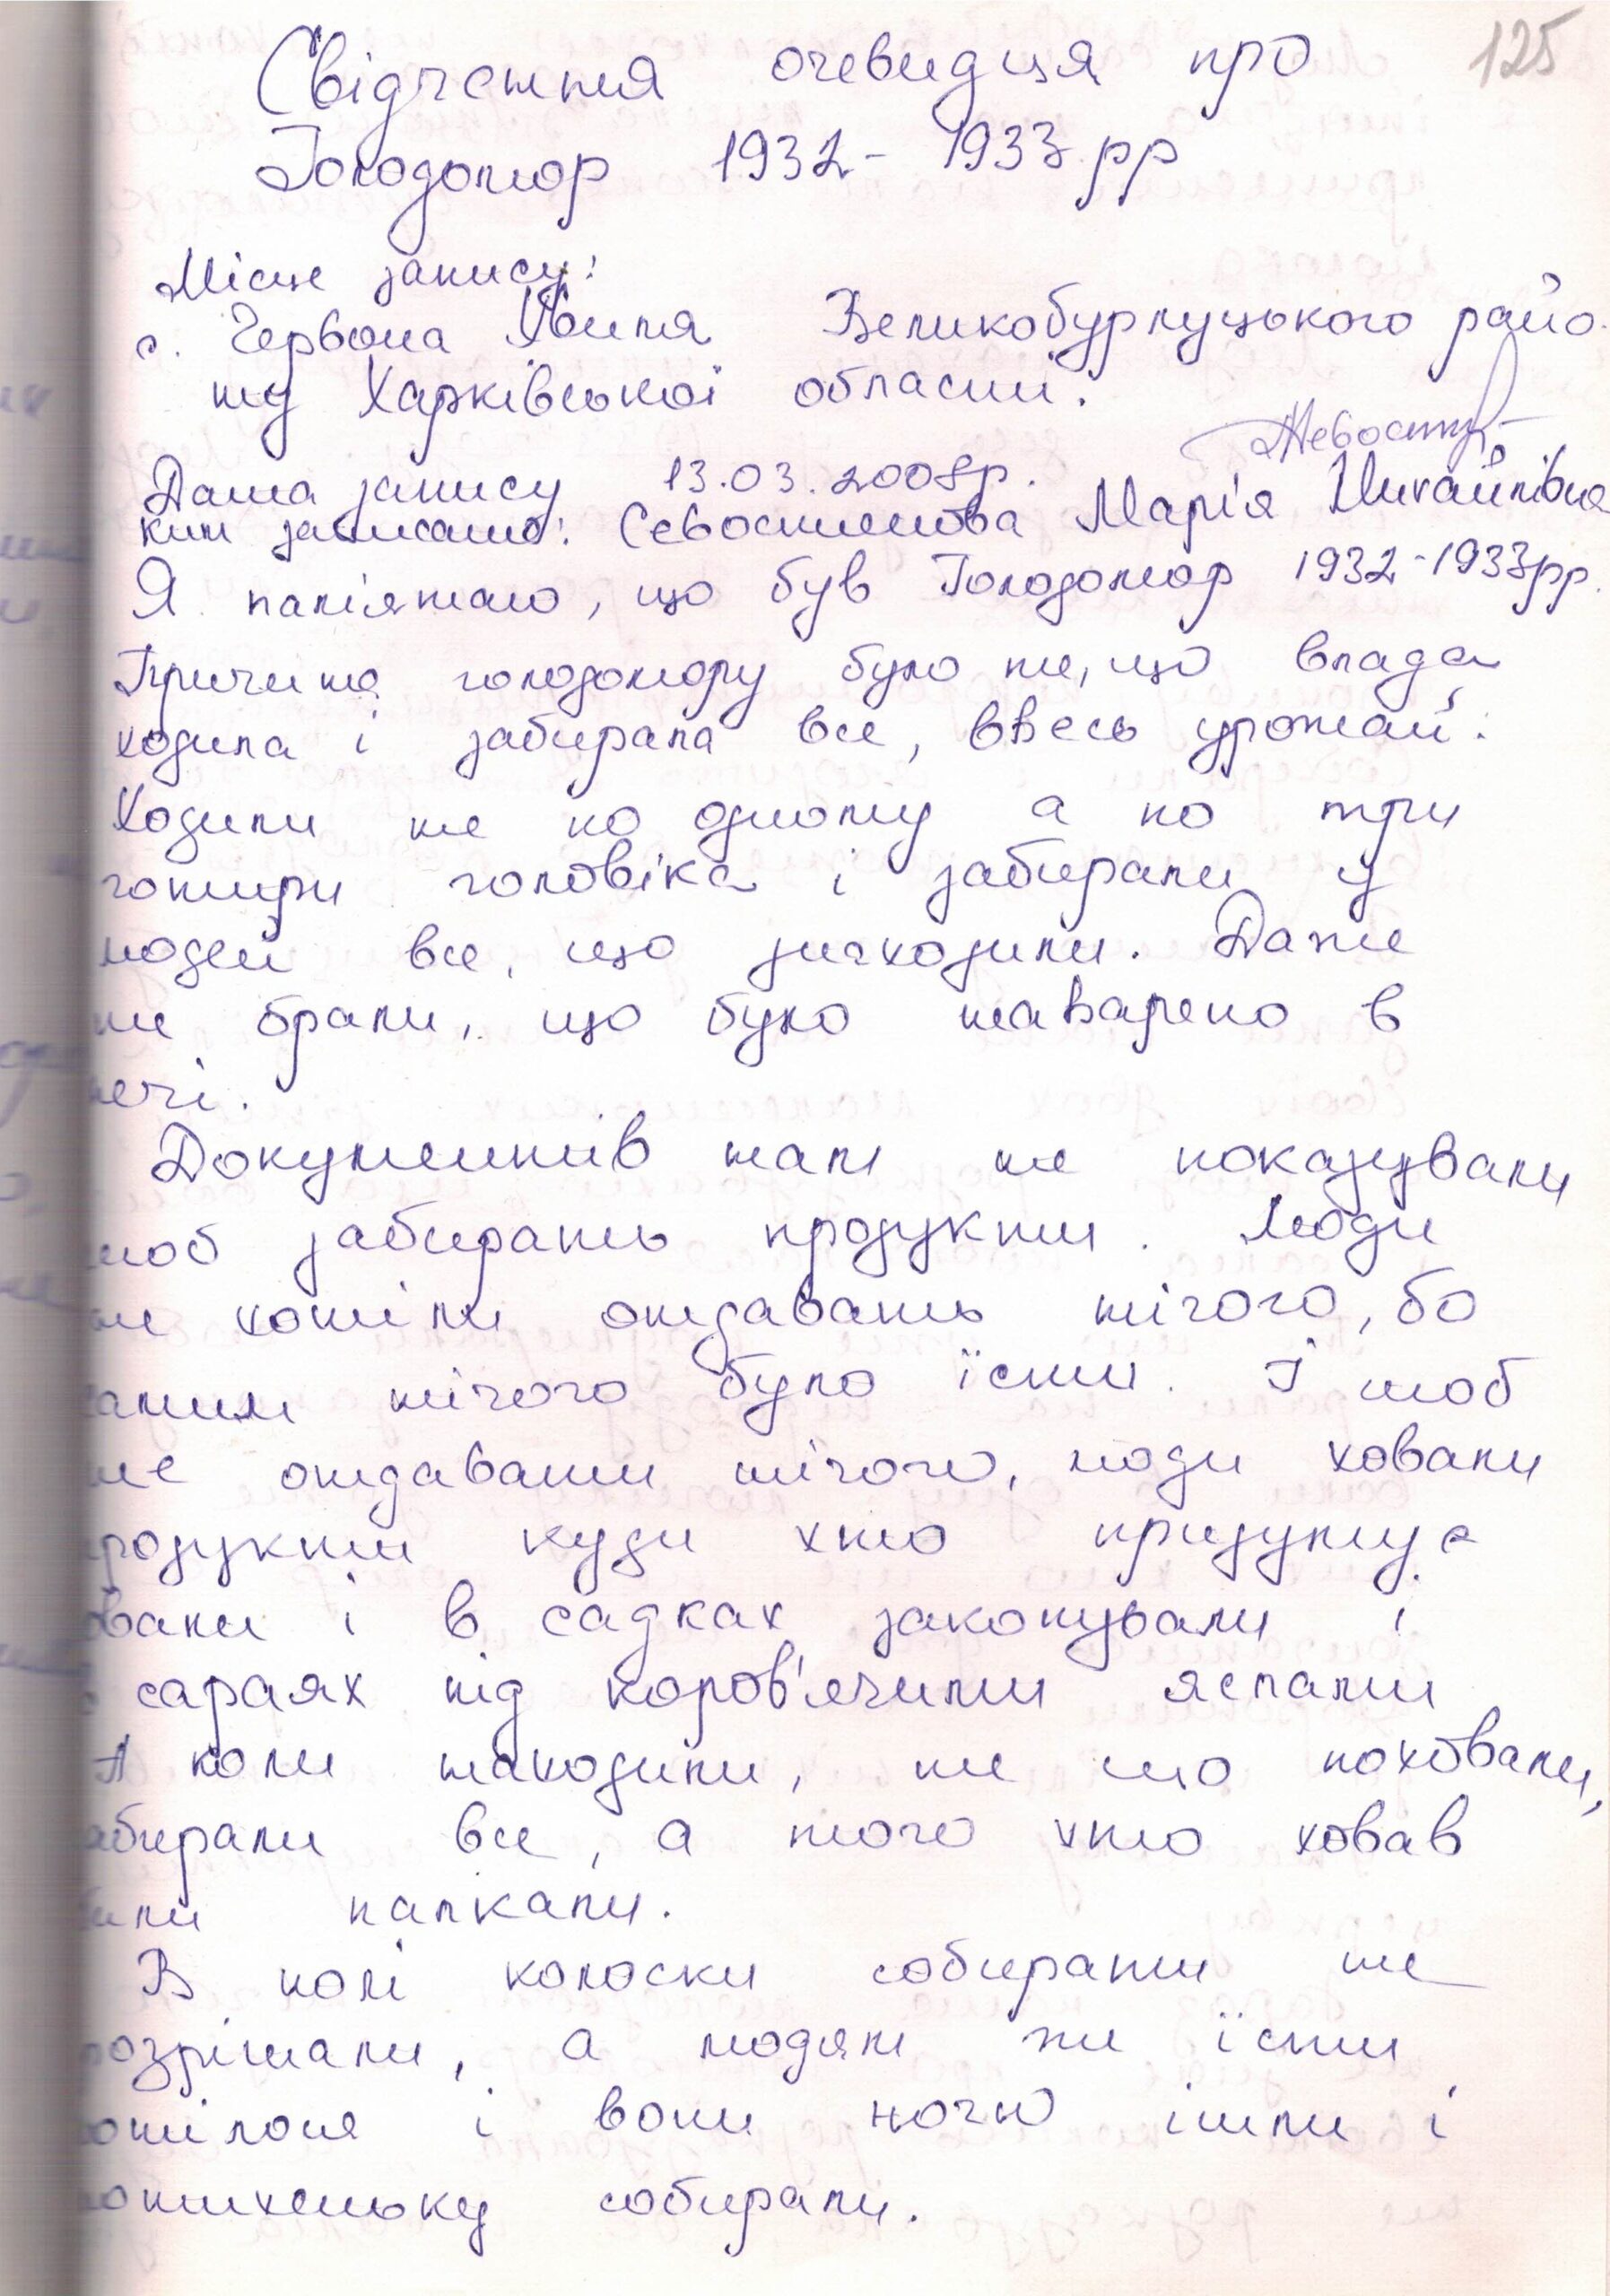 125
Свідчення очевидця про
Голодомор 1932-1933 рр
Місце запису:
с. Червона Хвиля Великобурлуцького райо-
ну Харківської області.
Дата запису 13.03.2008р.
ким записано: Севостянова Марія Михайлівна
Я памʼятаю, що був Голодомор 1932-1933рр.
Причина голодомору було те, що влада
ходила і забирала все, ввесь урожай.
Ходили не по одному а по три
чотири чоловіка і забирали у
людей все, що знаходили. Даже
те брали, що було наварено в
печі.
Документів нам не показували
шоб забирать продукти. Люди
не хотіли отдавать нічого, бо
самим нічого було їсти. І шоб
не отдавати нічого, люди ховали
продукти куди хто придумує
ховали і в садках закопували і
в сараях під коров'ячими яслами
А коли находили, те шо поховали,
забирали все, а того хто ховав
били палками.
В полі колоски собирати не
розрішали, а людям же їсти
хотілося і вони ночю ішли і
потихеньку собирали.